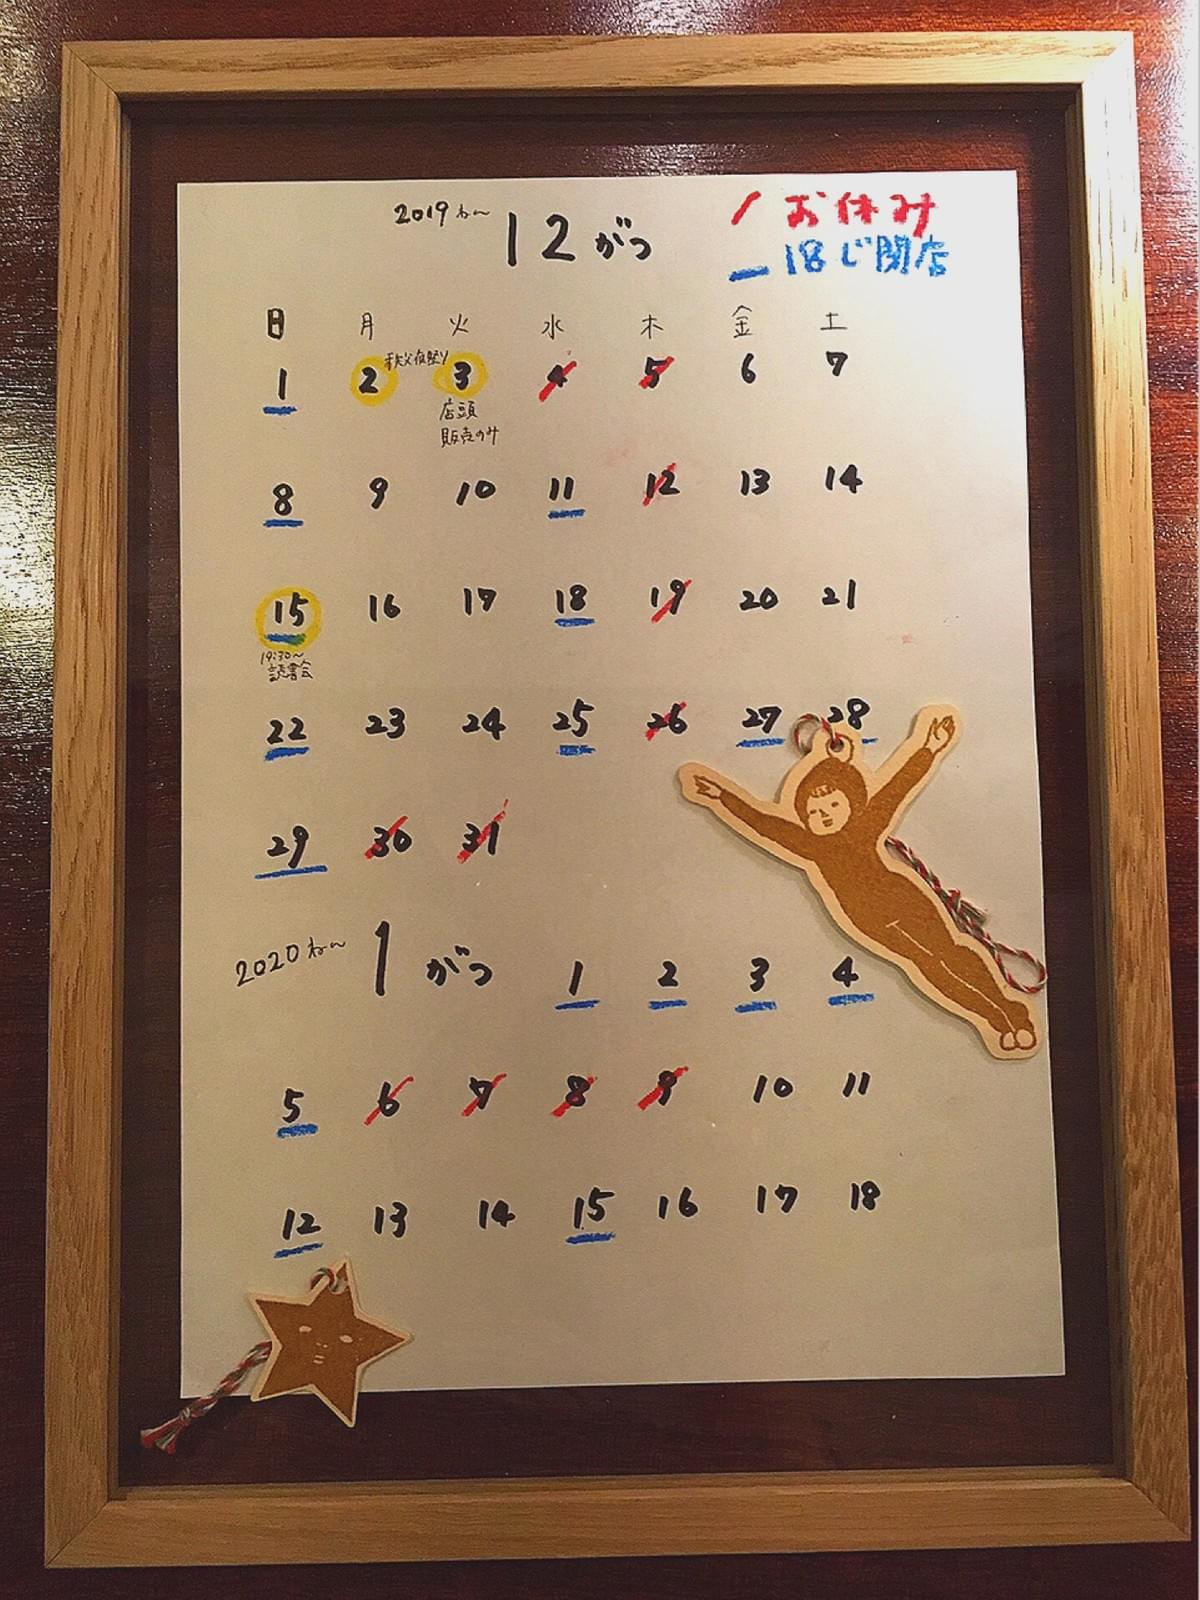 2019ねん
12がつ
/ お休み
_ 18じ閉店
日 月 火 水 木 金 土
秩父夜祭り
1 2 3 4 5 6 7
店頭
販売のみ
8 9 10 11 12 13 14
15 16 17 18 19 20 21
19:30〜
読書会
22 23 24 25 26 27 28
29 30 31
2020ねん 1がつ 1 2 3 4
5 6 7 8 9 10 11
12 13 14 15 16 17 18